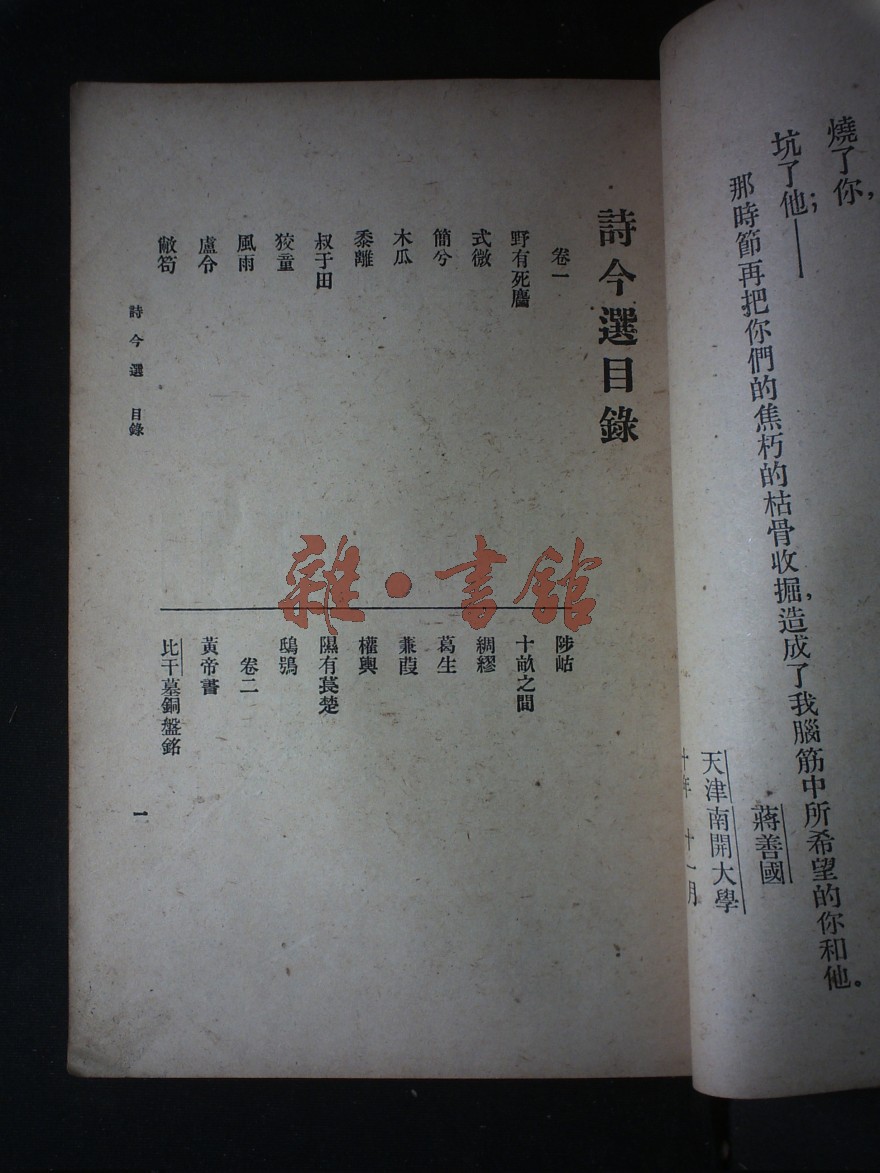 燒了你，
坑了他；——
那時節再把你們的焦朽的枯骨收掘，造成了我腦筋中所希望的你和他。
蔣善國
天津南開大學
十一月
詩今選目錄
卷一
野有死麕
式微
簡兮
木瓜
黍離
叔于田
狡童
風雨
盧令
敝笱
陟岵
十畝之間
綢繆
葛生
蒹葭
權輿
隰有萇楚
鴟鴞
卷二
黃帝書
比干墓銅盤銘
詩今選 目錄
一
雜·書館